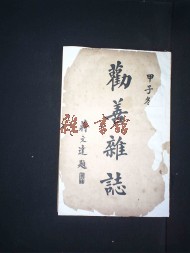 甲子冬
勸善雜誌
文達題